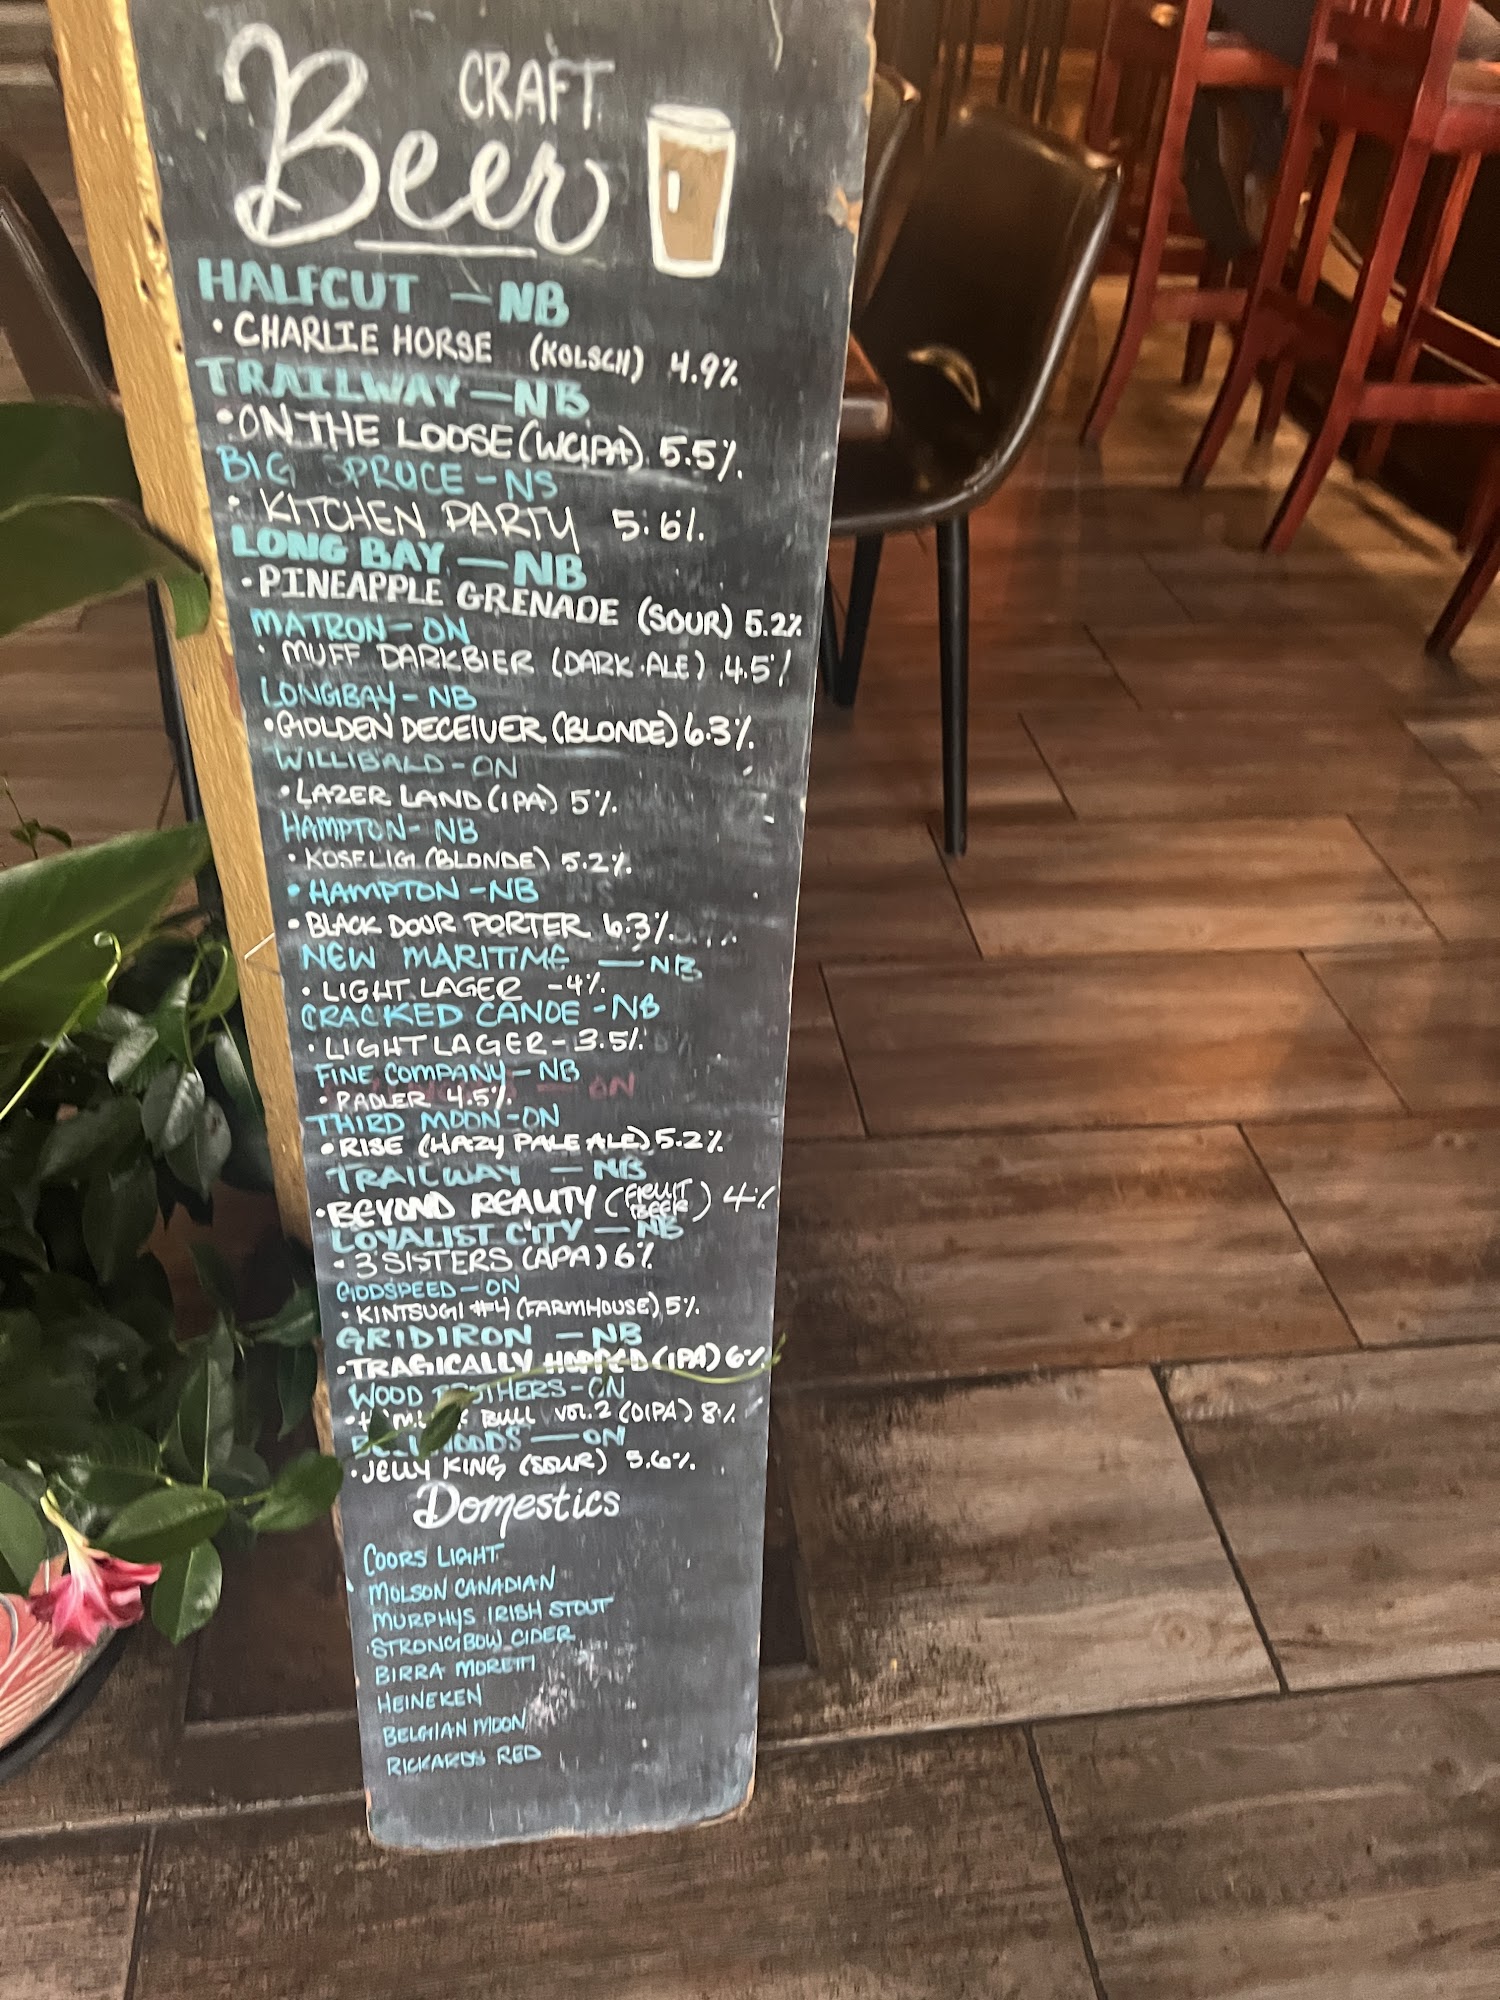 CRAFT
Beer
HALFCUT — NB
• CHARLIE HORSE (KOLSCH) 4.9%
TRAILWAY — NB
• ON THE LOOSE (WCIPA) 5.5%
BIG SPRUCE - NS
• KITCHEN PARTY 5.6%
LONG BAY — NB
• PINEAPPLE GRENADE (SOUR) 5.2%
MATRON - ON
• MUFF DARKBIER (DARK ALE) 4.5%
LONGBAY - NB
• GOLDEN DECEIVER (BLONDE) 6.3%
WILLIBALD - ON
• LAZER LAND (IPA) 5%
HAMPTON - NB
• KOSELIG (BLONDE) 5.2%
• HAMPTON - NB
• BLACK DOUR PORTER 6.3%
NEW MARITIME — NB
• LIGHT LAGER - 4%
CRACKED CANOE - NB
• LIGHT LAGER - 3.5%
FINE COMPANY - NB
• PADLER 4.5%
THIRD MOON - ON
• RISE (HAZY PALE ALE) 5.2%
TRAILWAY — NB
• BEYOND REALITY (FRUIT BEER) 4%
LOYALIST CITY — NB
• 3 SISTERS (APA) 6%
GODSPEED - ON
• KINTSUGI #4 (FARMHOUSE) 5%
GRIDIRON — NB
• TRAGICALLY HOPPED (IPA) 6%
WOOD BROTHERS - ON
• BULL VOL. 2 (DIPA) 8%
— ON
• JELLY KING (SOUR) 5.6%
Domestics
COORS LIGHT
MOLSON CANADIAN
MURPHYS IRISH STOUT
STRONGBOW CIDER
BIRRA MORETTI
HEINEKEN
BELGIAN MOON
RICKARDS RED